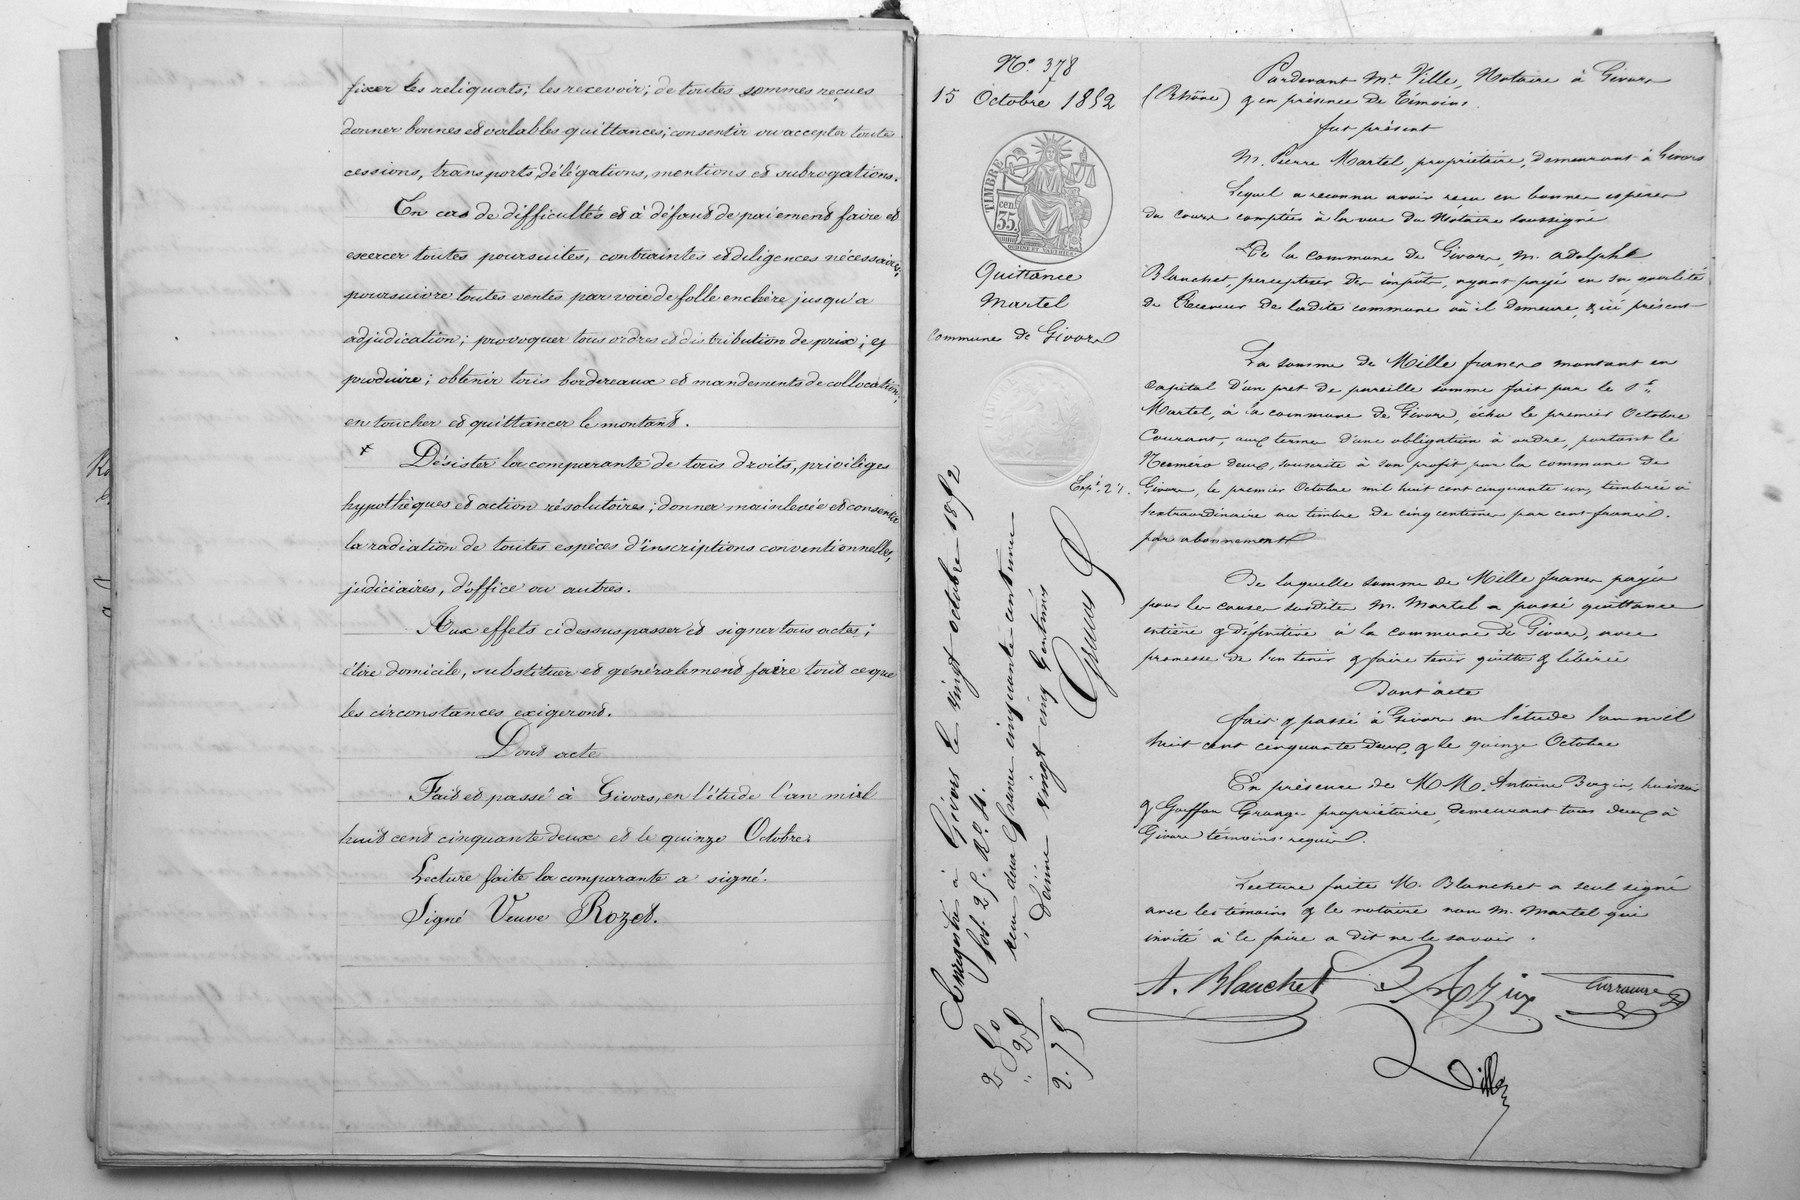 fixer les reliquats; les recevoir; de toutes sommes reçues
donner bonnes et valables quittances; consentir ou accepter toute
cessions, transports, délégations, mentions et subrogations.
En cas de difficultés et à défaut de paiement faire et
exercer toutes poursuites, contraintes et diligences nécessaires;
poursuivre toutes ventes par voie de folle enchère jusqu'a
adjudication; provoquer tous ordres et distribution de prix; y
produire; obtenir tous bordereaux et mandements de collocation;
en toucher et quittancer le montant.
Désister la comparante de tous droits, priviléges
hypothèques et action résolutoires; donner mainlevée et consentir
la radiation de toutes espèces d'inscriptions conventionnelles,
judiciaires, d'office ou autres.
Aux effets ci dessus passer et signer tous actes;
élire domicile, substituer et généralement faire tout ce que
les circonstances exigeront.
Dont acte
Fait et passé à Givors, en l'étude l'an mil
huit cent cinquante deux et le quinze Octobre.
Lecture faite la comparante a signé.
Signé Veuve Rozet.
N° 378
15 Octobre 1852
TIMBRE
35 cen
Quittance
Martel
Commune de Givors
Enregistré à Givors le vingt octobre 1852
fol. 25. R°.
reçu deux francs cinquante centimes
décime vingt cinq centimes
2 50
" 25
2.75
Pardevant Me Ville, Notaire à Givors
(Rhône) & en présence de témoins.
fut présent
M. Pierre Martel, propriétaire, demeurant à Givors
Lequel a reconnu avoir reçu en bonnes espèces
du cours comptées à la vue du Notaire soussigné
De la commune de Givors, M. Adolphe
Blanchet, percepteur des impôts, ayant payé en sa qualité
de Receveur de ladite commune où il demeure, & ici présent
La somme de Mille francs montant en
capital d'un pret de pareille somme fait par le Sr.
Martel, à la commune de Givors, échu le premier Octobre
Courant, aux termes d'une obligation à ordre, portant le
Numéro deux, souscrite à son profit par la commune de
Givors, le premier Octobre mil huit cent cinquante un, timbrée à
l'extraordinaire au timbre de cinq centimes par cent francs.
par abonnement
De laquelle somme de Mille francs payée
pour les causes susdites M. Martel a passé quittance
entière & définitive à la commune de Givors, avec
promesse de l'en tenir & faire tenir quitte & libérée
Dont acte
fait & passé à Givors en l'étude l'an mil
huit cent cinquante deux, & le quinze Octobre
En présence de MM. Antoine Bazin, huissier
& Grange propriétaire, demeurant tous deux à
Givors témoins requis.
Lecture faite M. Blanchet a seul signé
avec les témoins & le notaire non M. Martel qui
invité à le faire a dit ne le savoir.
A. Blanchet
Bazin
Ville